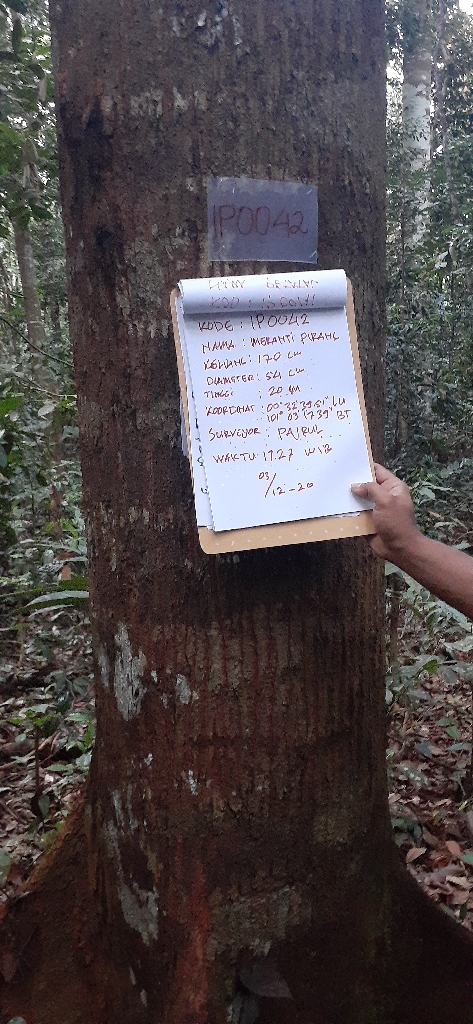 IP0042
KODE : IP0042
NAMA : MERANTI PIRANG
KELILING : 170 CM
DIAMETER : 54 CM
TINGGI : 20 M
KOORDINAT : 00° 32' 39.51" LU
101° 03' 17.39" BT
SURVEYOR : PAJRUL
WAKTU : 17.27 WIB
03/12-20